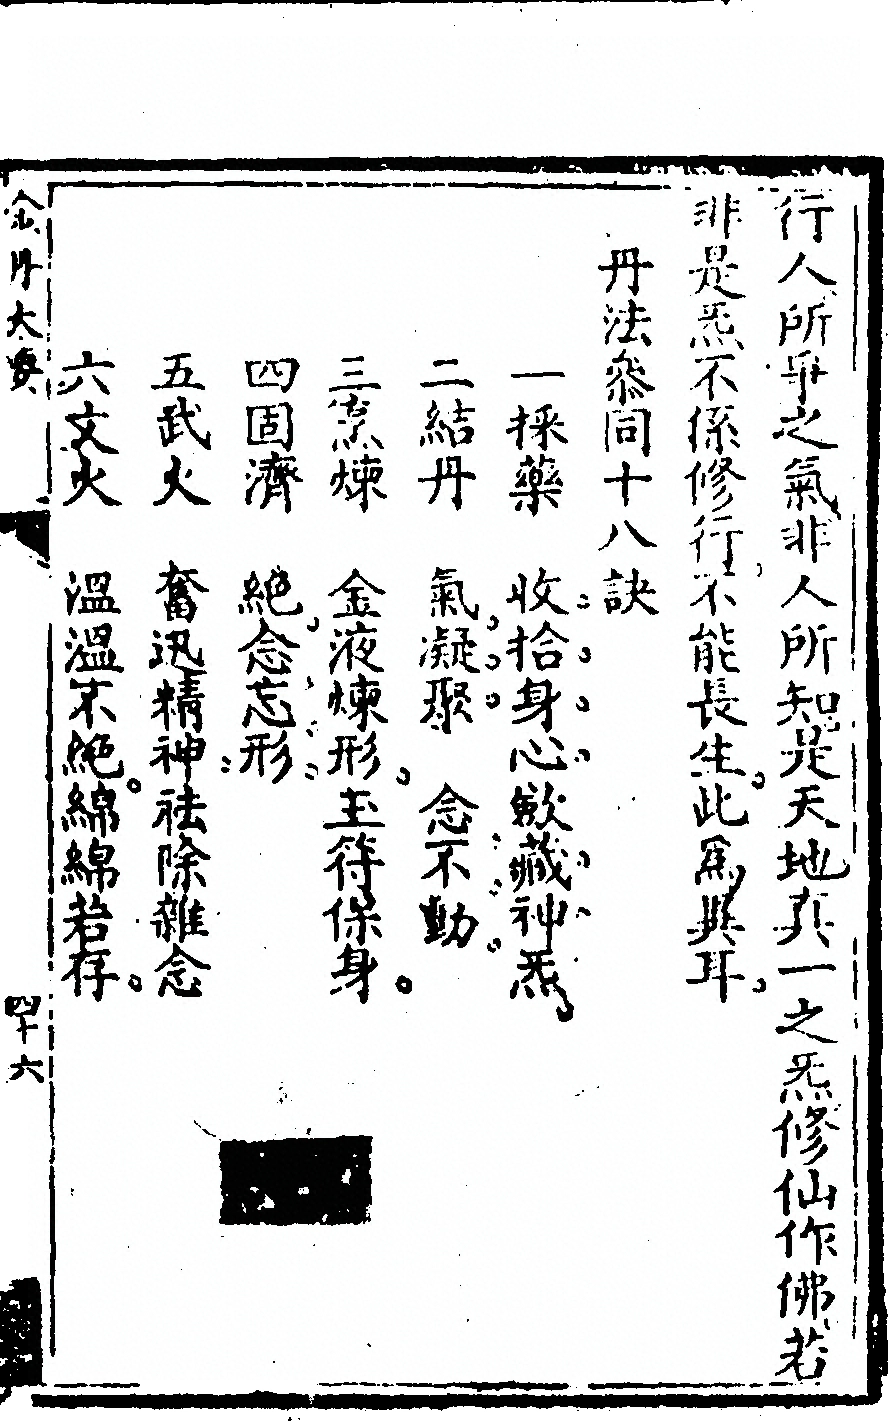 行人所爭之氣非人所知是天地真一之炁修仙作佛若
非是炁不係修行不能長生此爲異耳
丹法叅同十八訣
一採藥　收拾身心歛藏神炁
二結丹　氣凝聚　念不動
三烹煉　金液煉形玉符保身
四固濟　絕念忘形
五武火　奮迅精神祛除雜念
六文火　溫溫不絕綿綿若存
金丹大要
四十六